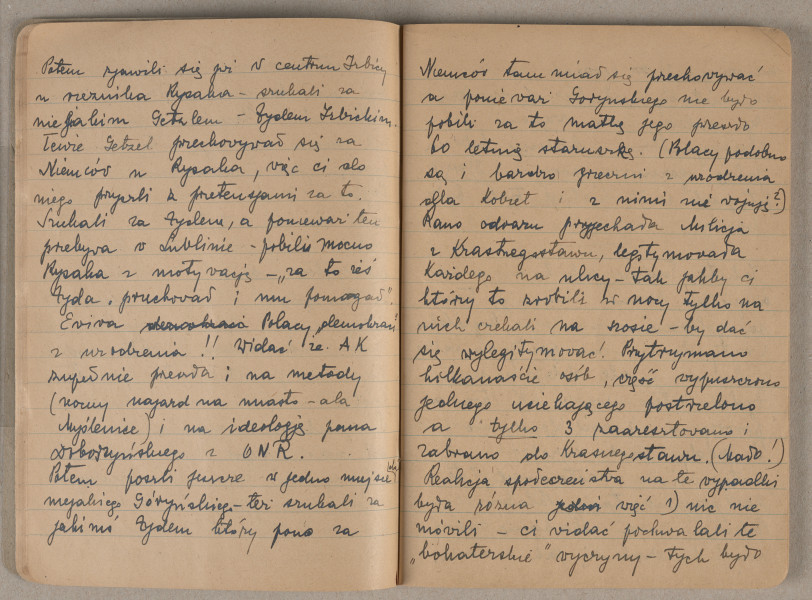 Potem zjawili się już w centrum Izbicy
u rzeźnika Rysaka – szukali za
niejakim Getzlem – Żydem Izbickim.
Tenże Getzel przechowywał się za
Niemców u Rysaka, więc ci do
niego przyszli z pretensjami za to.
Szukali za Żydem, a ponieważ ten
przebywa w Lublinie – pobili mocno
Rysaka z motywacją – „za to żeś
Żyda przechował i mu pomagał".
Eviva demokraci Polacy „demokraci"
z urodzenia !! Widać że AK
zupełnie przeszła i na metody
(nowy najazd na miasto – ala
Myślenice) i na ideologję pana
Doboszyńskiego z ONR.
Potem poszli jeszcze w jedno miejsce
niejakiego Góryńskiego – też szukali za
jakimś Żydem który pono za
Niemców tam miał się przechowywać
a ponieważ Goryńskiego nie było
pobili za to matkę jego przeszło
60 letnią staruszkę. (Polacy podobno
są i bardzo grzeczni z urodzenia
dla kobiet i z nimi nie wojują?)
Rano odrazu przyjechała Milicja
z Krasnegostawu, legitymowała
każdego na ulicy – tak jakby ci
którzy to zrobili w nocy tylko na
nich czekali na szosie – by dać
się wylegitymować! Przytrzymano
kilkanaście osób, część wypuszczono
jednego uciekającego postrzelono
a tylko 3 zaaresztowano i
zabrano do Krasnegostawu. (Mało!)
Reakcja społeczeństwa na te wypadki
była różna część 1) nic nie
mówili – ci widać pochwalali te
„bohaterskie" wyczyny – tych było